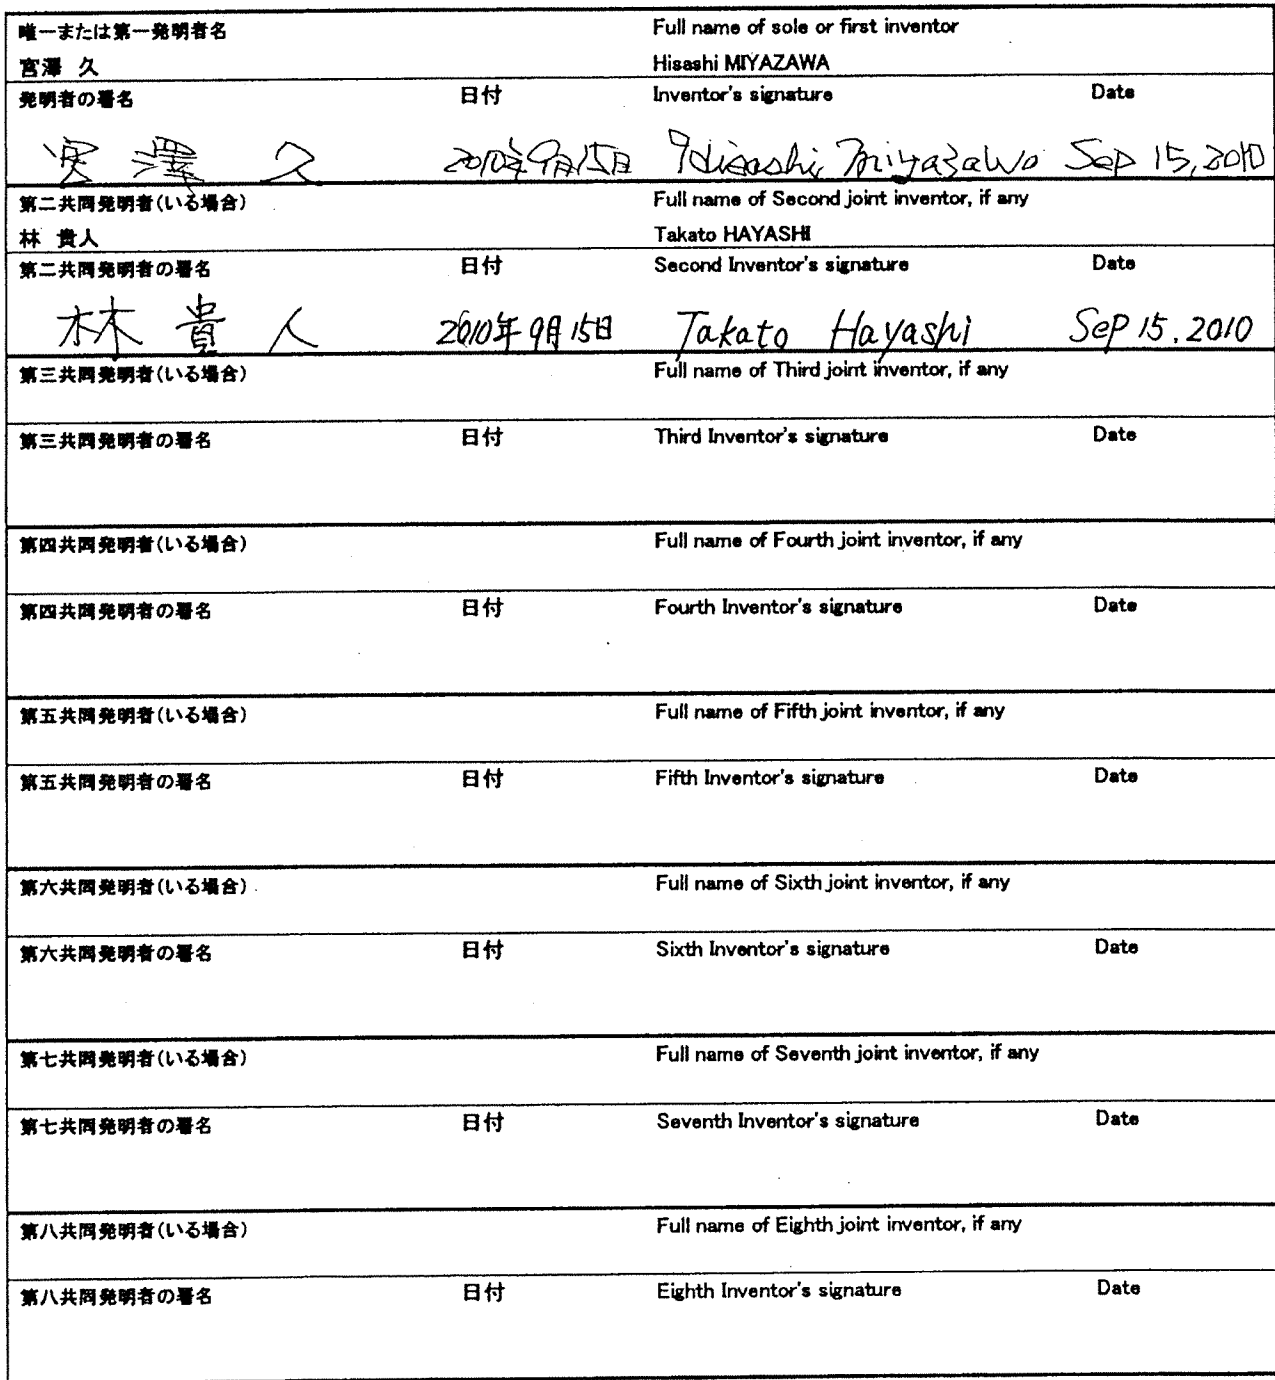 唯一または第一発明者名 Full name of sole or first inventor
宮澤 久 Hisashi MIYAZAWA
発明者の署名 日付 Inventor's signature Date
宮澤 久 2010年9月15日 Hisashi Miyazawa Sep 15, 2010
第二共同発明者(いる場合) Full name of Second joint inventor, if any
林 貴人 Takato HAYASHI
第二共同発明者の署名 日付 Second Inventor's signature Date
林 貴人 2010年9月15日 Takato Hayashi Sep 15, 2010
第三共同発明者(いる場合) Full name of Third joint inventor, if any
第三共同発明者の署名 日付 Third Inventor's signature Date
第四共同発明者(いる場合) Full name of Fourth joint inventor, if any
第四共同発明者の署名 日付 Fourth Inventor's signature Date
第五共同発明者(いる場合) Full name of Fifth joint inventor, if any
第五共同発明者の署名 日付 Fifth Inventor's signature Date
第六共同発明者(いる場合) Full name of Sixth joint inventor, if any
第六共同発明者の署名 日付 Sixth Inventor's signature Date
第七共同発明者(いる場合) Full name of Seventh joint inventor, if any
第七共同発明者の署名 日付 Seventh Inventor's signature Date
第八共同発明者(いる場合) Full name of Eighth joint inventor, if any
第八共同発明者の署名 日付 Eighth Inventor's signature Date